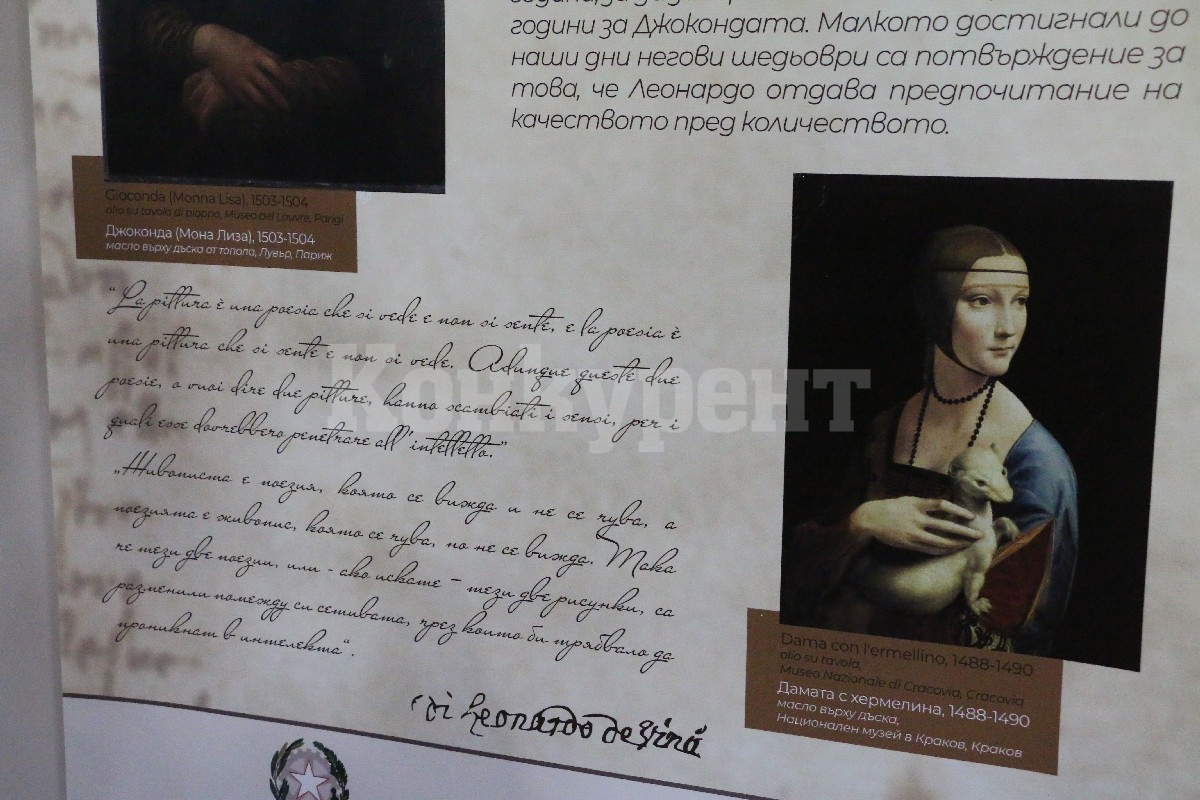 години за Джокондата. Малкото достигнали до
наши дни негови шедьоври са потвърждение за
това, че Леонардо отдава предпочитание на
качеството пред количеството.
Gioconda (Monna Lisa), 1503-1504
olio su tavola di pioppo, Museo del Louvre, Parigi
Джоконда (Мона Лиза), 1503-1504
масло върху дъска от топола, Лувър, Париж
"La pittura è una poesia che si vede e non si sente, e la poesia è
una pittura che si sente e non si vede. Adunque queste due
poesie, o vuoi dire due pitture, hanno scambiati i sensi, per i
quali esse dovrebbero penetrare all'intelletto."
„Живописта е поезия, която се вижда и не се чува, а
поезията е живопис, която се чува, но не се вижда. Така
че тези две поезии, или - ако искате – тези две рисунки, са
разменили помежду си сетивата, чрез които би трябвало да
проникнат в интелекта“.
Конкурент
Dama con l'ermellino, 1488-1490
olio su tavola,
Museo Nazionale di Cracovia, Cracovia
Дамата с хермелина, 1488-1490
масло върху дъска,
Национален музей в Краков, Краков